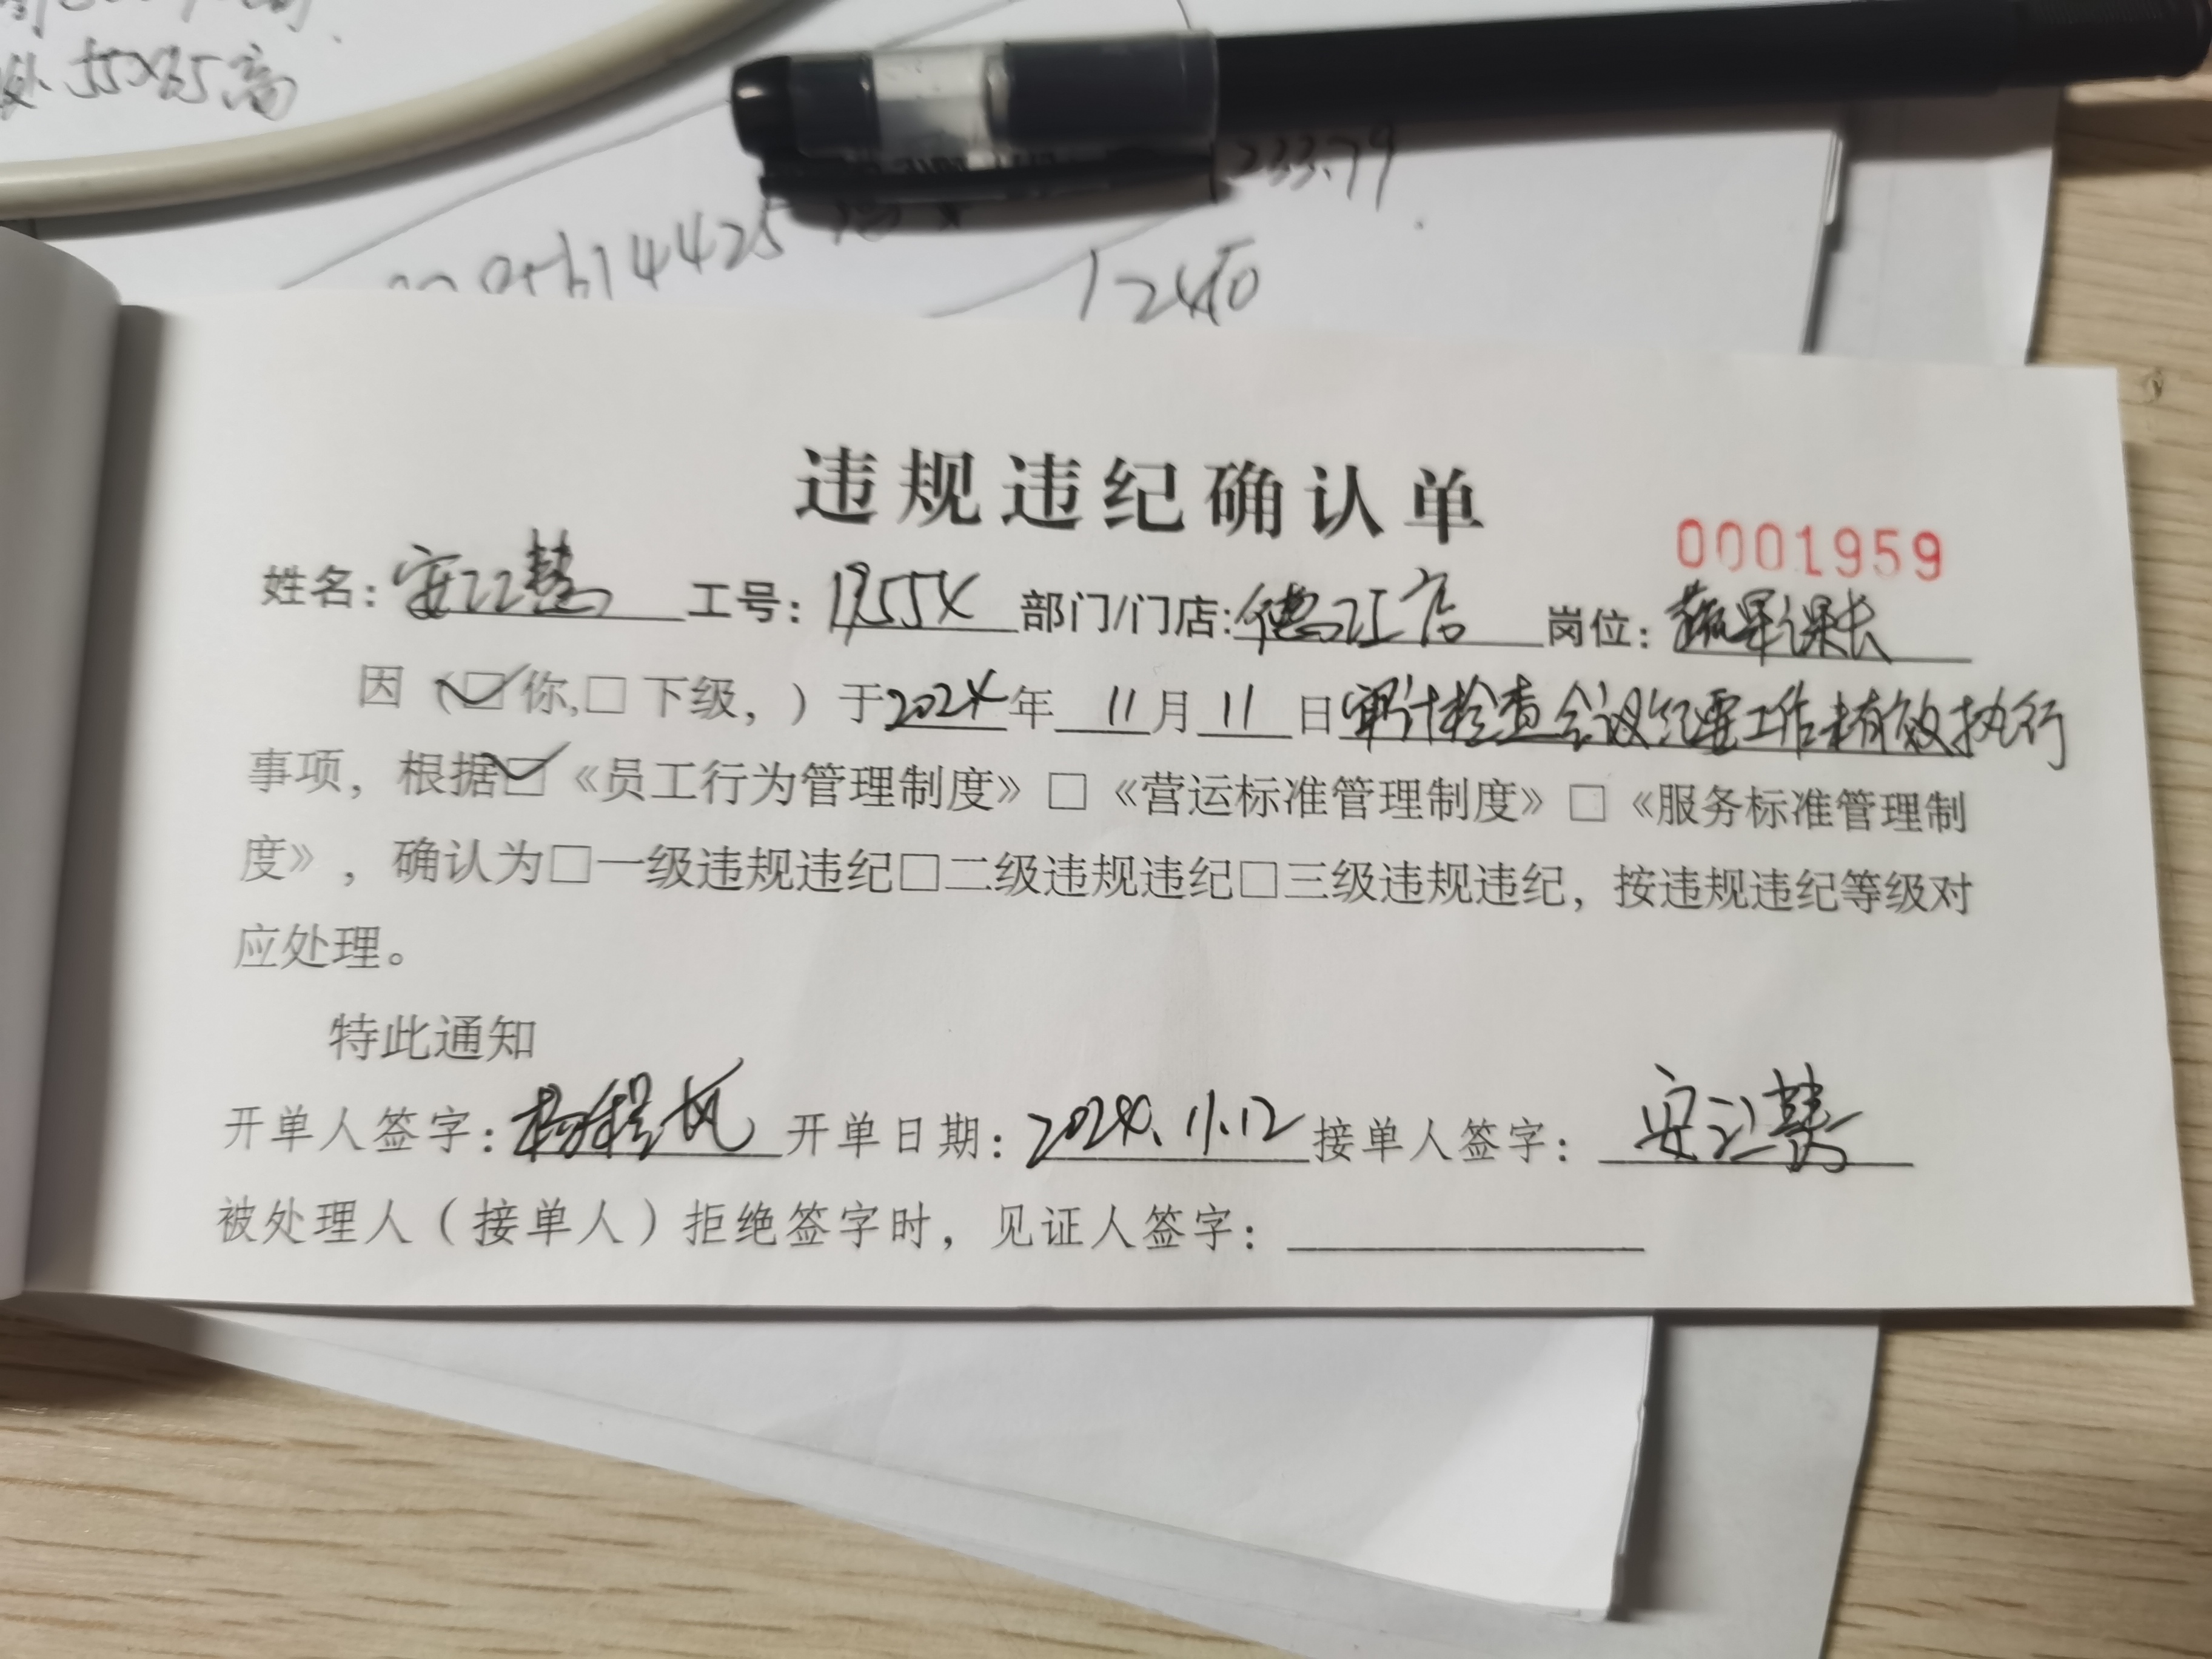 55X35高
233.79
14425
违规违纪确认单
0001959
姓名: 安江慧 工号: 1955X 部门/门店: 德江店 岗位: 蔬果课长
因(☑你,□下级,)于2024年11月11日审计检查会议纪要工作未有效执行
事项,根据☑《员工行为管理制度》□《营运标准管理制度》□《服务标准管理制
度》,确认为□一级违规违纪□二级违规违纪□三级违规违纪,按违规违纪等级对
应处理。
特此通知
开单人签字: 杨 开单日期: 2024.11.12 接单人签字: 安江慧
被处理人(接单人)拒绝签字时,见证人签字: